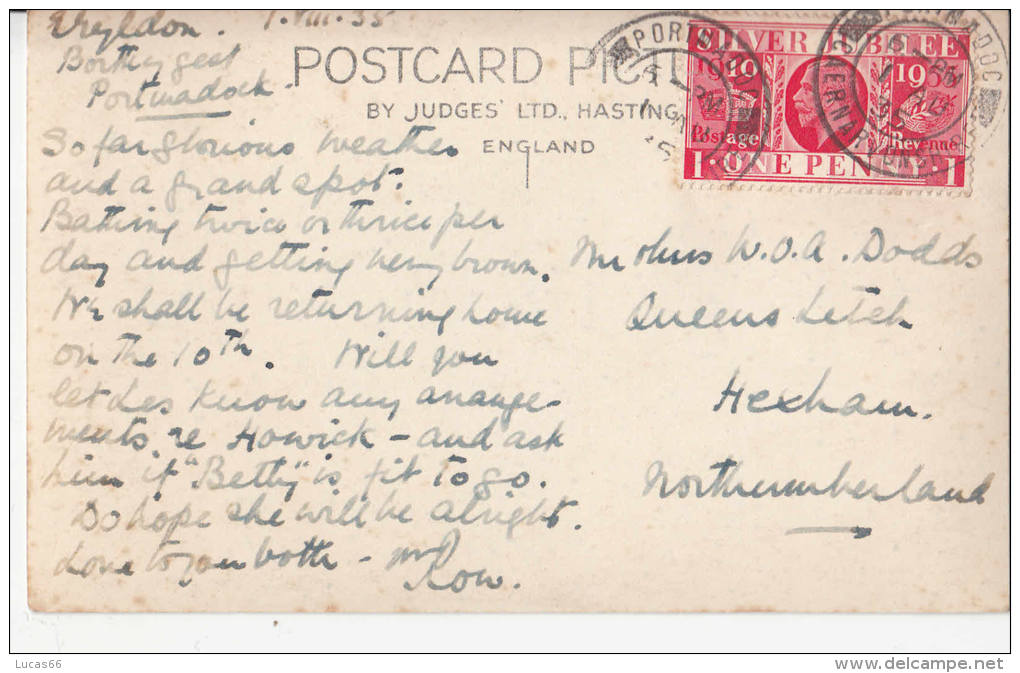 1.VIII.35
Borthygest
Portmadock.
POSTCARD
BY JUDGES' LTD., HASTING
ENGLAND
SILVER JUBILEE
1910 1935
Postage Revenue
1 ONE PENNY 1
PORTMADOC
CAERNARVONSHIRE
So far glorious weather
and a grand spot.
Bathing twice or thrice per
day and getting very brown.
We shall be returning home
on the 10th. Will you
let Les know any arrange-
ments re Howick - and ask
him if "Betty" is fit to go.
Do hope she will be alright.
Love to you both -
Mr & Mrs W.O.A. Dodds
Queens Letch
Hexham.
Northumberland
Lucas66
www.delcampe.net